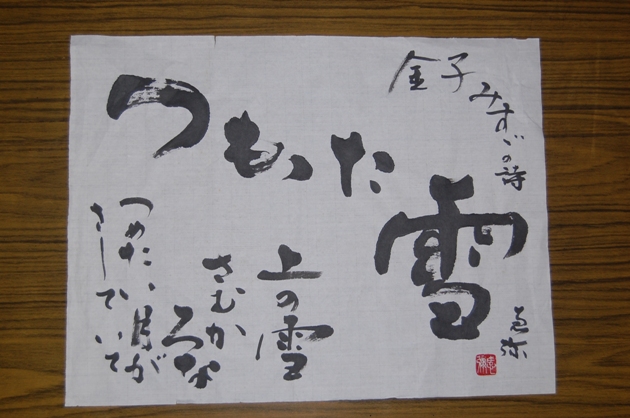 金子みすゞの詩
つもった
雪
上の雪
さむか
ろな
つめたい月が
さしていて